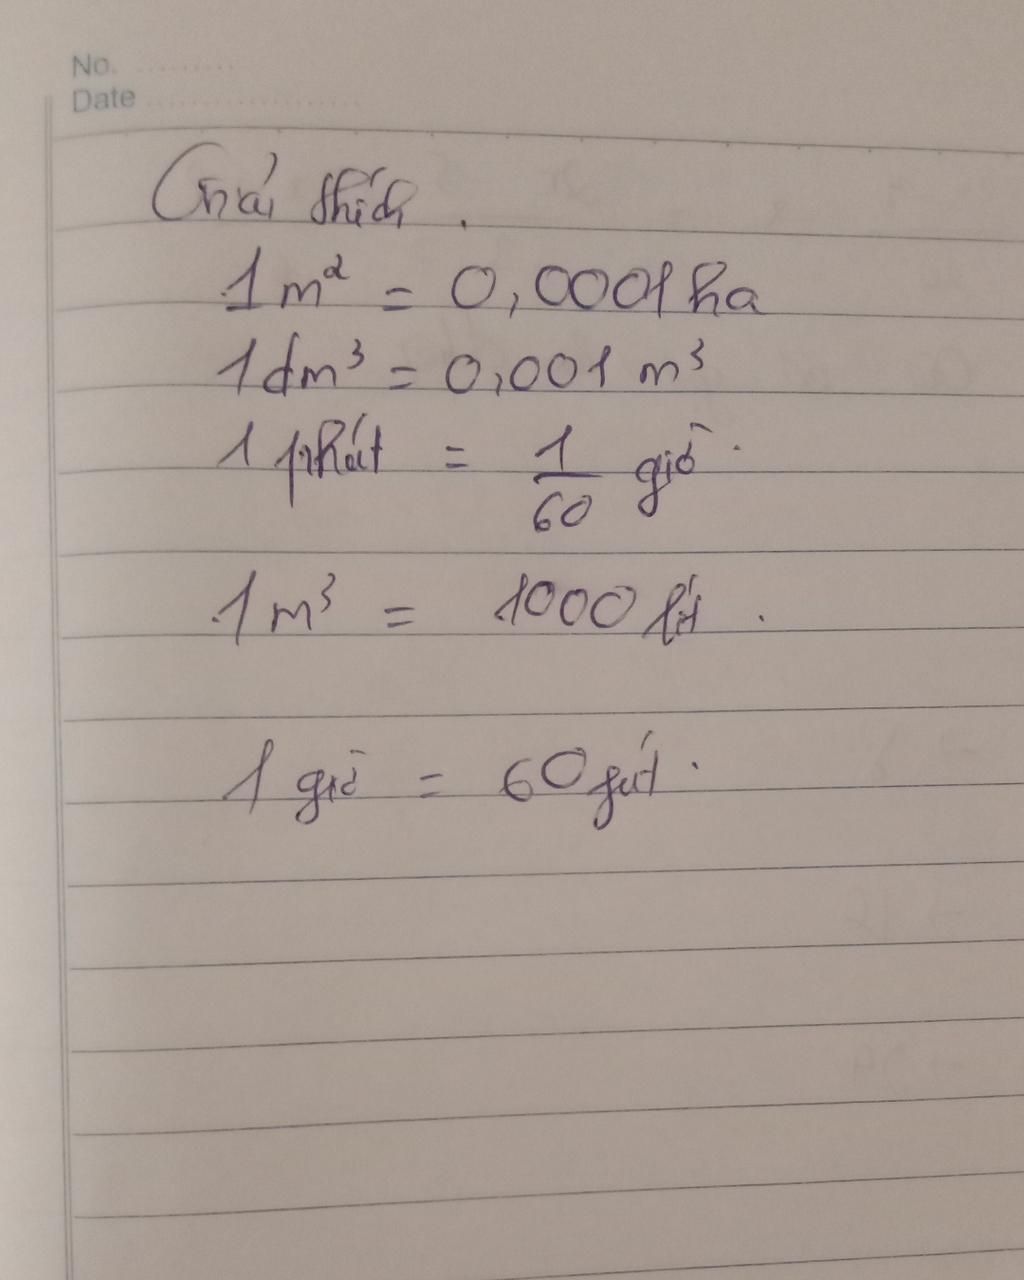 No. .........
Date ....................
Giải thích.
1m² = 0,0001 ha
1dm³ = 0,001 m³
1 phút = 1/60 giờ.
1m³ = 1000 lít.
1 giờ = 60 phút.